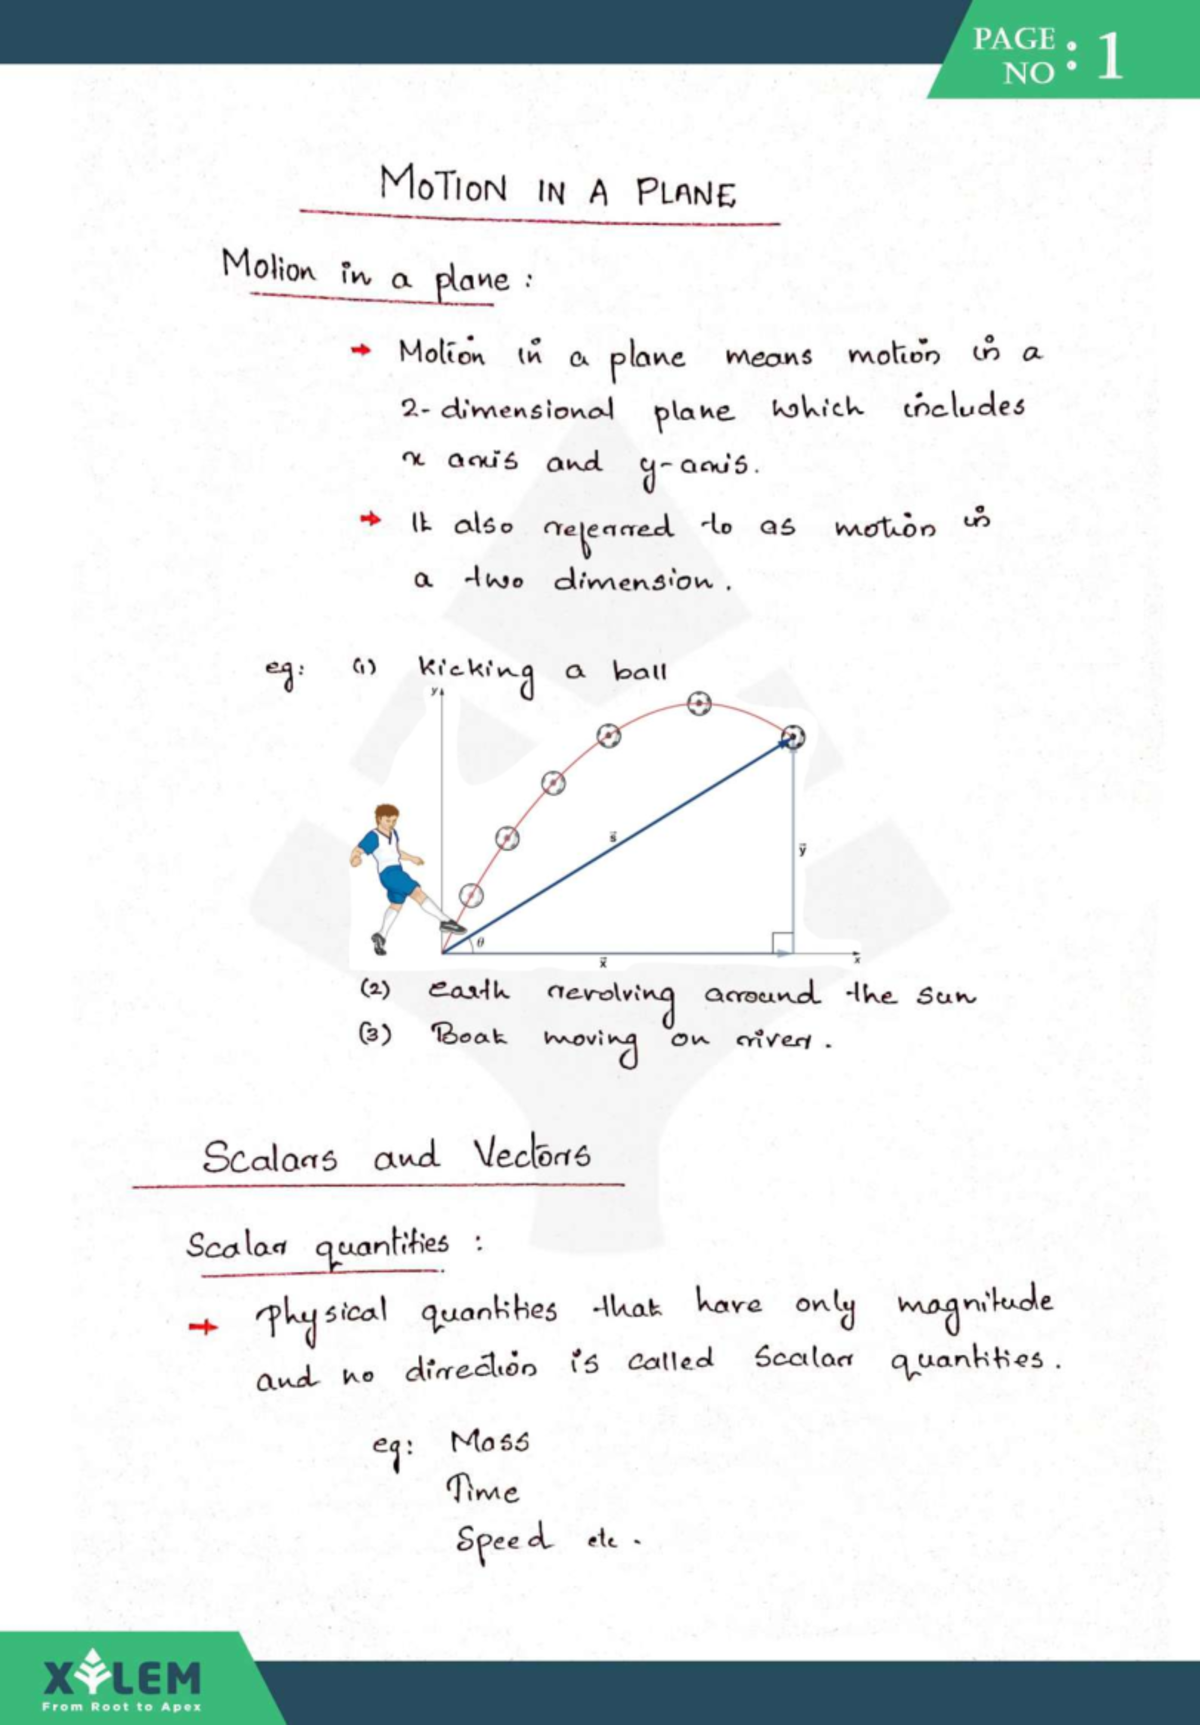 PAGE NO : 1
MOTION IN A PLANE
Motion in a plane :
→ Motion in a plane means motion in a
2-dimensional plane which includes
x axis and y-axis.
→ It also referred to as motion in
a two dimension.
eg: (1) kicking a ball
y
s
y
θ
x
x
(2) earth revolving around the sun
(3) Boat moving on river.
Scalars and Vectors
Scalar quantities :
→ Physical quantities that have only magnitude
and no direction is called Scalar quantities.
eg: Mass
Time
Speed etc.
XYLEM
From Root to Apex